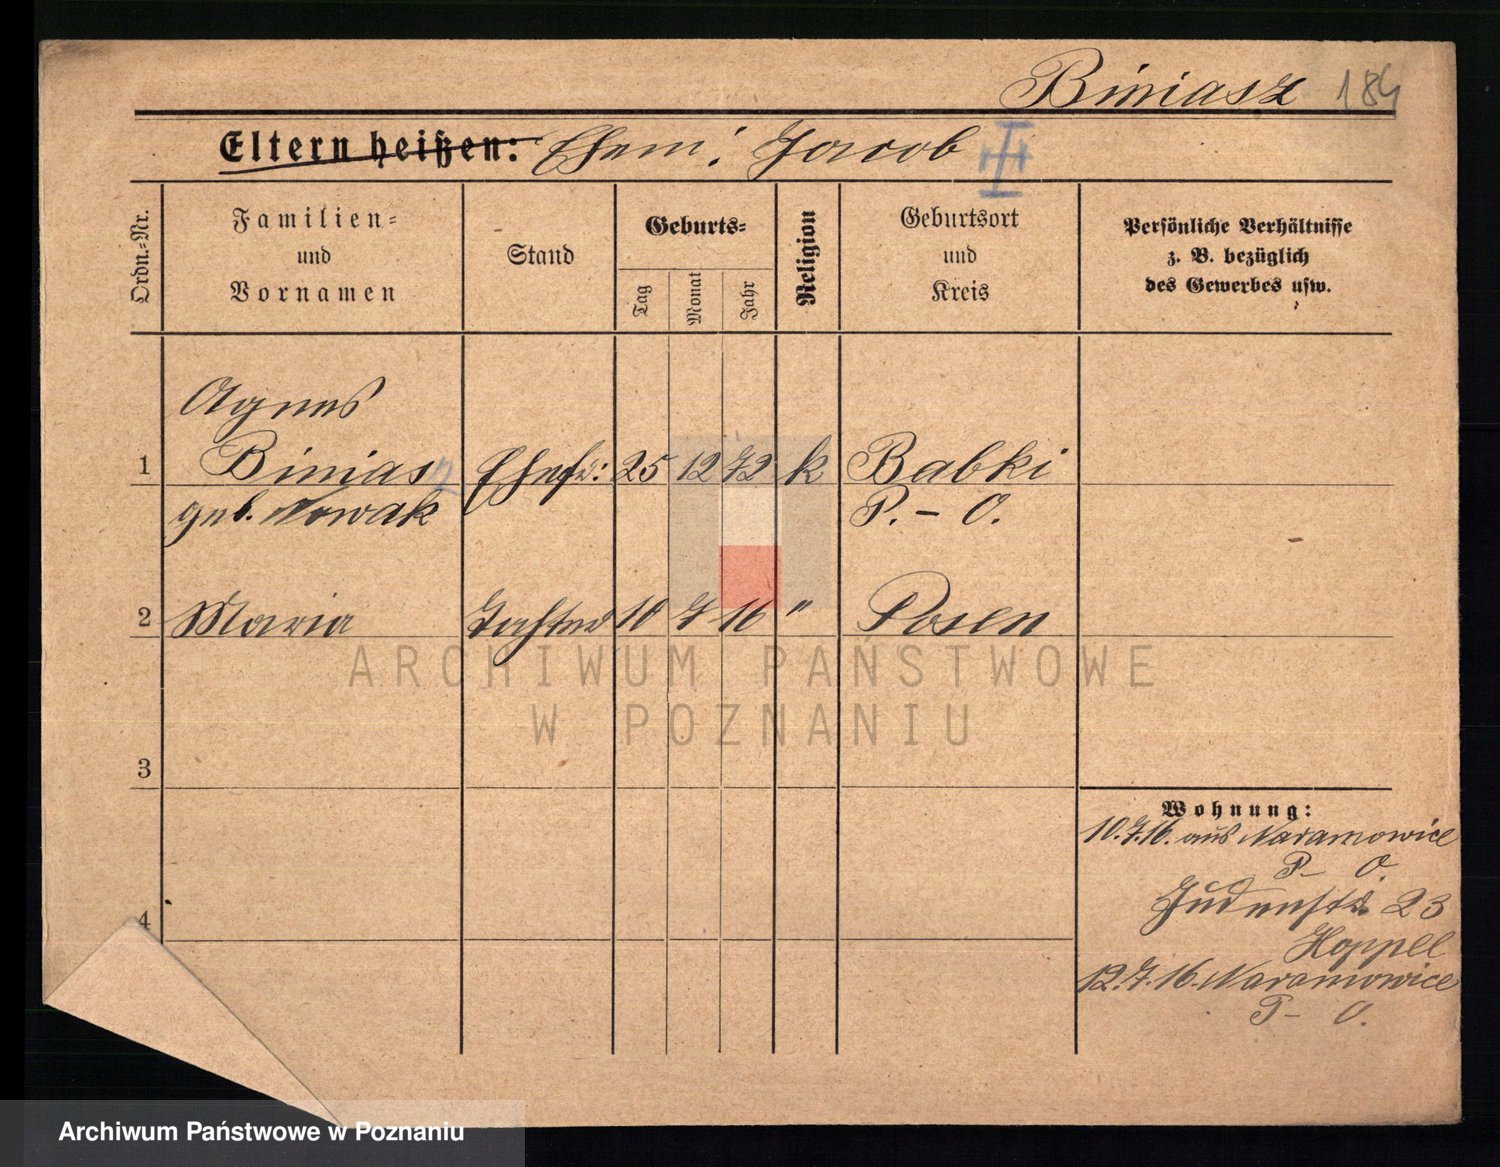 Biniasz 184
Eltern heißen: Ehem: Jacob
Ordn.-Nr.
Familien-
und
Vornamen
Stand
Geburts-
Tag
Monat
Jahr
Religion
Geburtsort
und
Kreis
Persönliche Verhältnisse
z. B. bezüglich
des Gewerbes usw.
Agnes
1 Biniasz Ehefr: 25 12 72 k Babki
geb. Nowak P. - O.
2 Maria Tochter 10 7 16 " Posen
ARCHIWUM PAŃSTWOWE
W POZNANIU
3
Wohnung:
10.7.16. aus Naramowice
P - O.
Judenstr. 23
4
Hoppel
12.7.16. Naramowice
P - O.
Archiwum Państwowe w Poznaniu